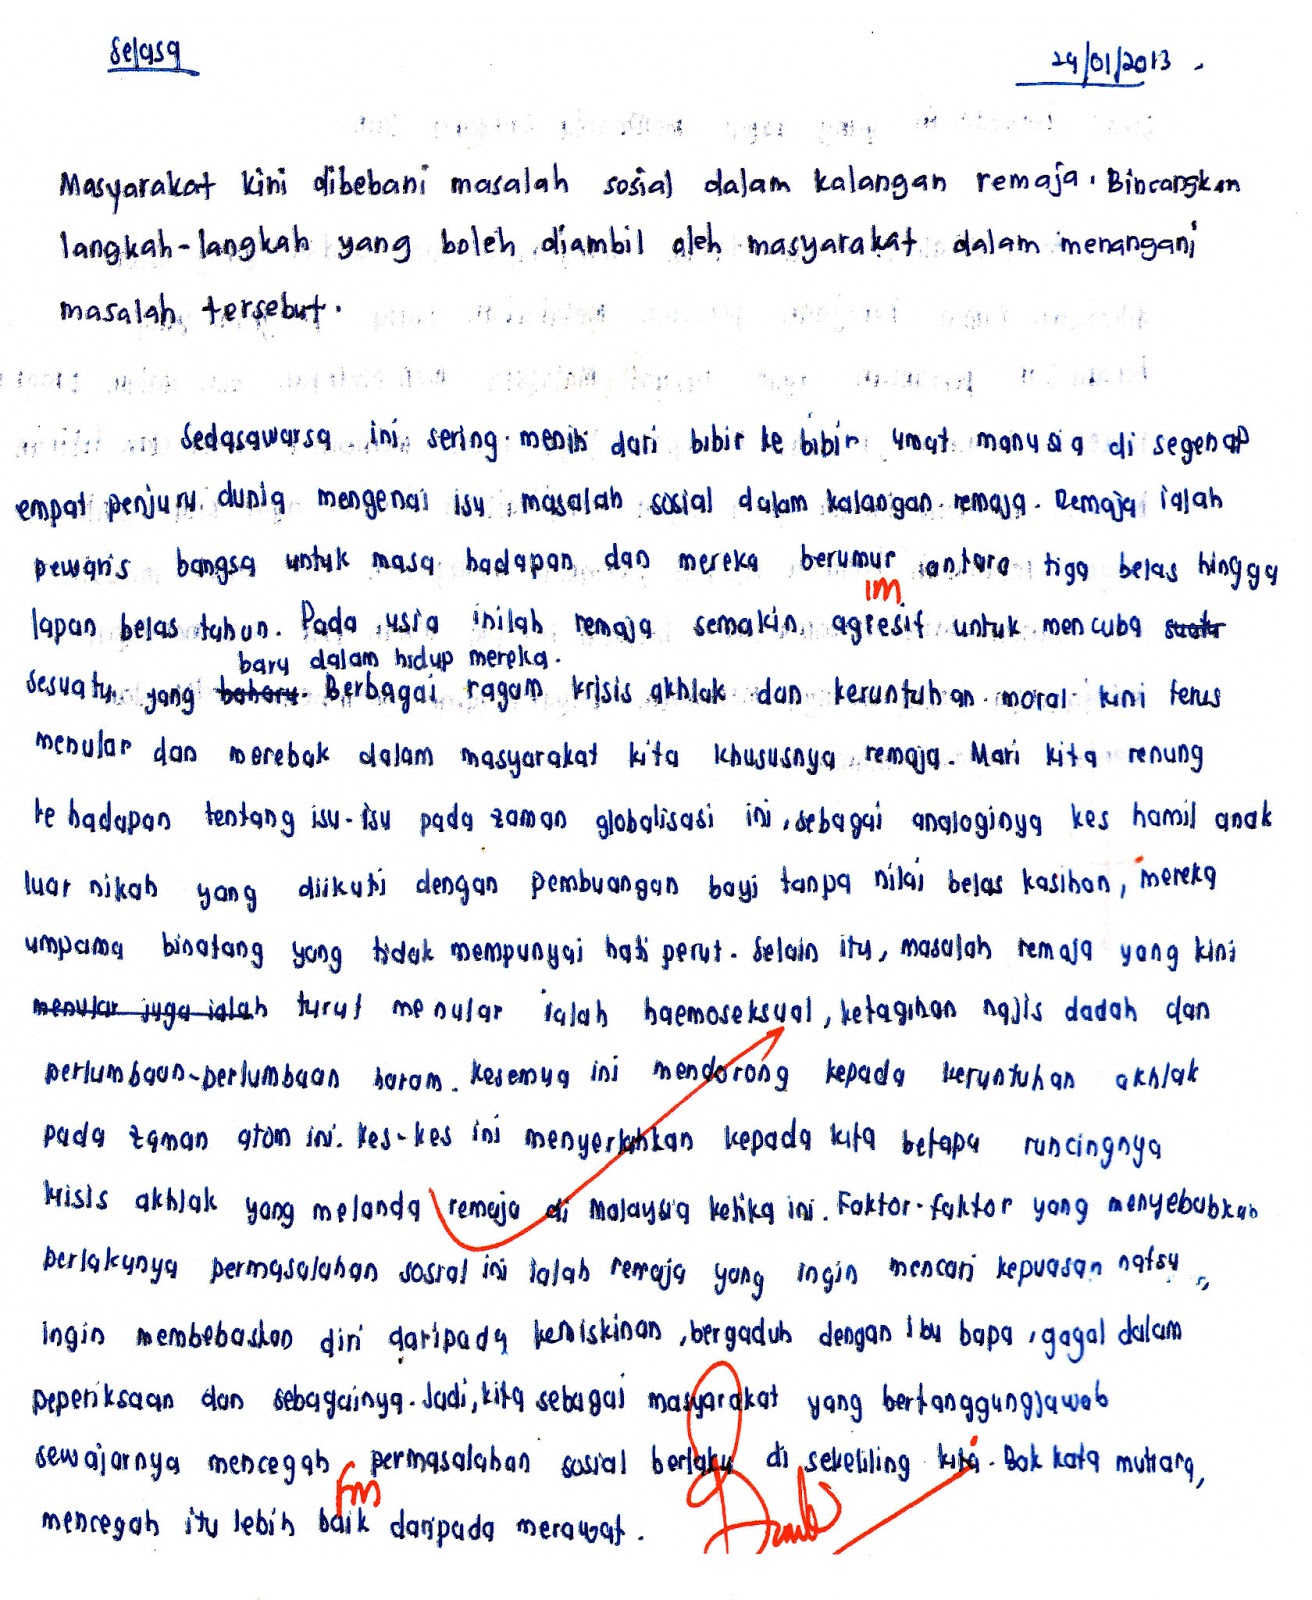 Selasa
29/01/2013.
Masyarakat kini dibebani masalah sosial dalam kalangan remaja. Bincangkan
langkah-langkah yang boleh diambil oleh masyarakat dalam menangani
masalah tersebut.
Sedasawarsa ini sering meniti dari bibir ke bibir umat manusia di segenap
empat penjuru dunia mengenai isu masalah sosial dalam kalangan remaja. Remaja ialah
pewaris bangsa untuk masa hadapan dan mereka berumur antara tiga belas hingga
1m
lapan belas tahun. Pada usia inilah remaja semakin agresif untuk mencuba suatu
baru dalam hidup mereka.
sesuatu yang baharu. Berbagai ragam krisis akhlak dan keruntuhan moral kini terus
menular dan merebak dalam masyarakat kita khususnya remaja. Mari kita renung
ke hadapan tentang isu-isu pada zaman globalisasi ini, sebagai analoginya kes hamil anak
luar nikah yang diikuti dengan pembuangan bayi tanpa nilai belas kasihan, mereka
umpama binatang yang tidak mempunyai hati perut. Selain itu, masalah remaja yang kini
menular juga ialah turut menular ialah haemoseksual, ketagihan najis dadah dan
perlumbaan-perlumbaan haram. Kesemua ini mendorong kepada keruntuhan akhlak
pada zaman atom ini. Kes-kes ini menyerlahkan kepada kita betapa runcingnya
krisis akhlak yang melanda remaja di Malaysia ketika ini. Faktor-faktor yang menyebabkan
berlakunya permasalahan sosial ini ialah remaja yang ingin mencari kepuasan nafsu,
ingin membebaskan diri daripada kemiskinan, bergaduh dengan ibu bapa, gagal dalam
peperiksaan dan sebagainya. Jadi, kita sebagai masyarakat yang bertanggungjawab
sewajarnya mencegah permasalahan sosial berlaku di sekeliling kita. Bak kata mutiara,
Fm
mencegah itu lebih baik daripada merawat.